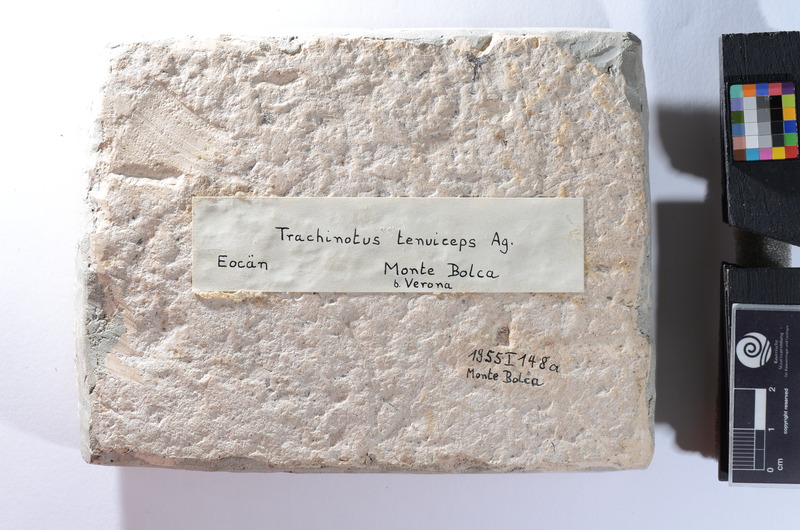 Trachinotus tenuiceps Ag.
Eocän
Monte Bolca
b. Verona
1955 I 148a
Monte Bolca
copyright reserved
0 1 2
cm